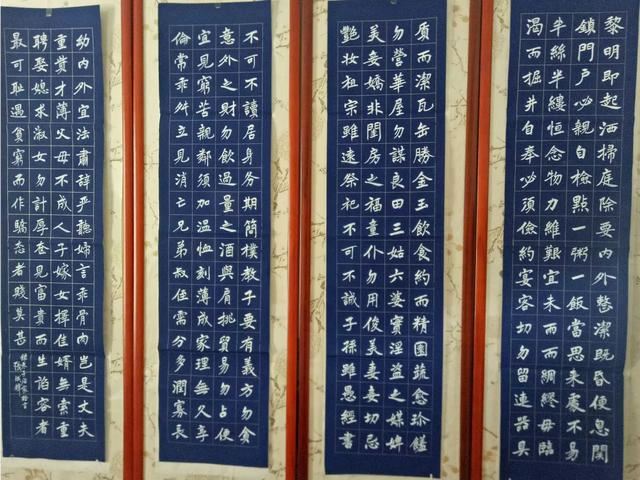 黎明即起洒掃庭除要内外整潔既昏便息関
鎖門户必親自檢點一粥一飯當思来處不易
半絲半縷恒念物力維艱宜未雨而綢繆毋臨
渴而掘井自奉必須儉約宴客切勿留連器具
質而潔瓦缶勝金玉飲食約而精園蔬愈珍饈
勿營華屋勿謀良田三姑六婆實淫盗之媒婢
美妾嬌非閨房之福童仆勿用俊美妻妾切忌
艷妝祖宗雖遠祭祀不可不誠子孫雖愚經書
不可不讀居身务期簡樸教子要有義方勿貪
意外之財勿飲過量之酒與肩挑貿易勿占便
宜見窮苦親鄰須加温恤刻薄成家理無久享
倫常乖舛立見消亡兄弟叔侄需分多潤寡長
幼内外宜法肅辞严聽婦言乖骨肉豈是丈夫
重貲才薄父母不成人子嫁女擇佳婿無索重
聘娶媳求淑女勿計厚奁見富貴而生諂容者
最可耻遇貧窮而作驕态者賤莫甚